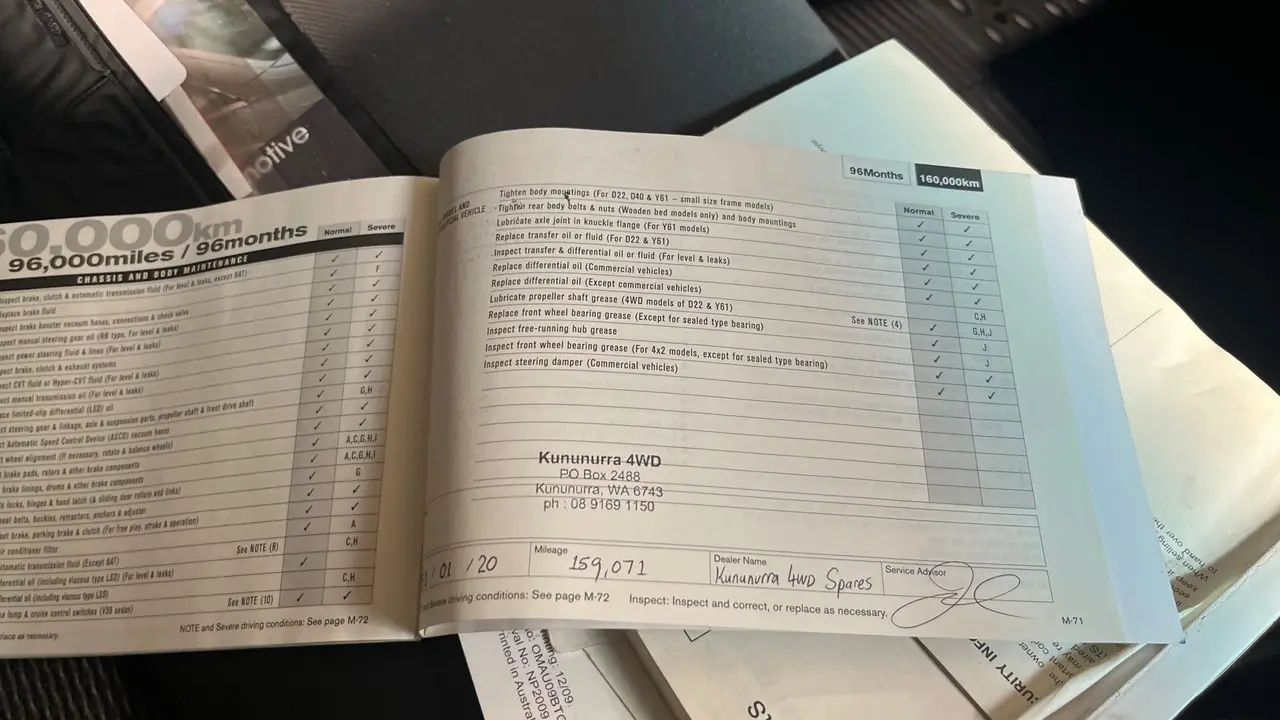 notive
60,000km
96,000miles / 96months
Normal Severe
CHASSIS AND BODY MAINTENANCE
Inspect brake, clutch & automatic transmission fluid (For level & leaks, except 8AT) ✓ ✓
Replace brake fluid ✓ F
Inspect brake booster vacuum hoses, connections & check valve ✓ ✓
Inspect manual steering gear oil (RB type, For level & leaks) ✓ ✓
Inspect power steering fluid & lines (For level & leaks) ✓ ✓
Inspect brake, clutch & exhaust systems ✓ ✓
CVT fluid or Hyper-CVT fluid (For level & leaks) ✓ ✓
manual transmission oil (For level & leaks) ✓ ✓
limited-slip differential (LSD) oil G,H
steering gear & linkage, axle & suspension parts, propeller shaft & front drive shaft ✓ ✓
Automatic Speed Control Device (ASCD) vacuum hoses ✓ ✓
wheel alignment (If necessary, rotate & balance wheels) ✓ A,C,G,H,I
brake pads, rotors & other brake components ✓ A,C,G,H,I
brake linings, drums & other brake components ✓ G
locks, hinges & hood latch (& sliding door rollers and links) ✓ ✓
belts, buckles, retractors, anchors & adjuster ✓ ✓
brake, parking brake & clutch (For free play, stroke & operation) ✓ A
conditioner filter See NOTE (8) C,H
automatic transmission fluid (Except 8AT) ✓
differential oil (including viscous type LSD) (For level & leaks) C,H
differential oil (including viscous type LSD)
lamp & cruise control switches (V36 sedan) See NOTE (10) ✓ ✓
replace as necessary.
NOTE and Severe driving conditions: See page M-72
96Months 160,000km
MODEL AND
VEHICLE
Normal Severe
Tighten body mountings (For D22, D40 & Y61 – small size frame models) ✓ ✓
Tighten rear body bolts & nuts (Wooden bed models only) and body mountings ✓ ✓
Lubricate axle joint in knuckle flange (For Y61 models) ✓ ✓
Replace transfer oil or fluid (For D22 & Y61) ✓ ✓
Inspect transfer & differential oil or fluid (For level & leaks) ✓ ✓
Replace differential oil (Commercial vehicles) ✓ ✓
Replace differential oil (Except commercial vehicles) C,H
Lubricate propeller shaft grease (4WD models of D22 & Y61) See NOTE (4) ✓ G,H,J
Replace front wheel bearing grease (Except for sealed type bearing) ✓ J
Inspect free-running hub grease ✓ J
Inspect front wheel bearing grease (For 4x2 models, except for sealed type bearing) ✓ ✓
Inspect steering damper (Commercial vehicles) ✓ ✓
Kununurra 4WD
PO Box 2488
Kununurra, WA 6743
ph : 08 9169 1150
/ 01 / 20
Mileage
159,071
Dealer Name
Kununurra 4WD Spares
Service Advisor
Severe driving conditions: See page M-72 Inspect: Inspect and correct, or replace as necessary.
M-71
12/09
No: OMAU09BTO
val No: NP2009
Printed in Austral